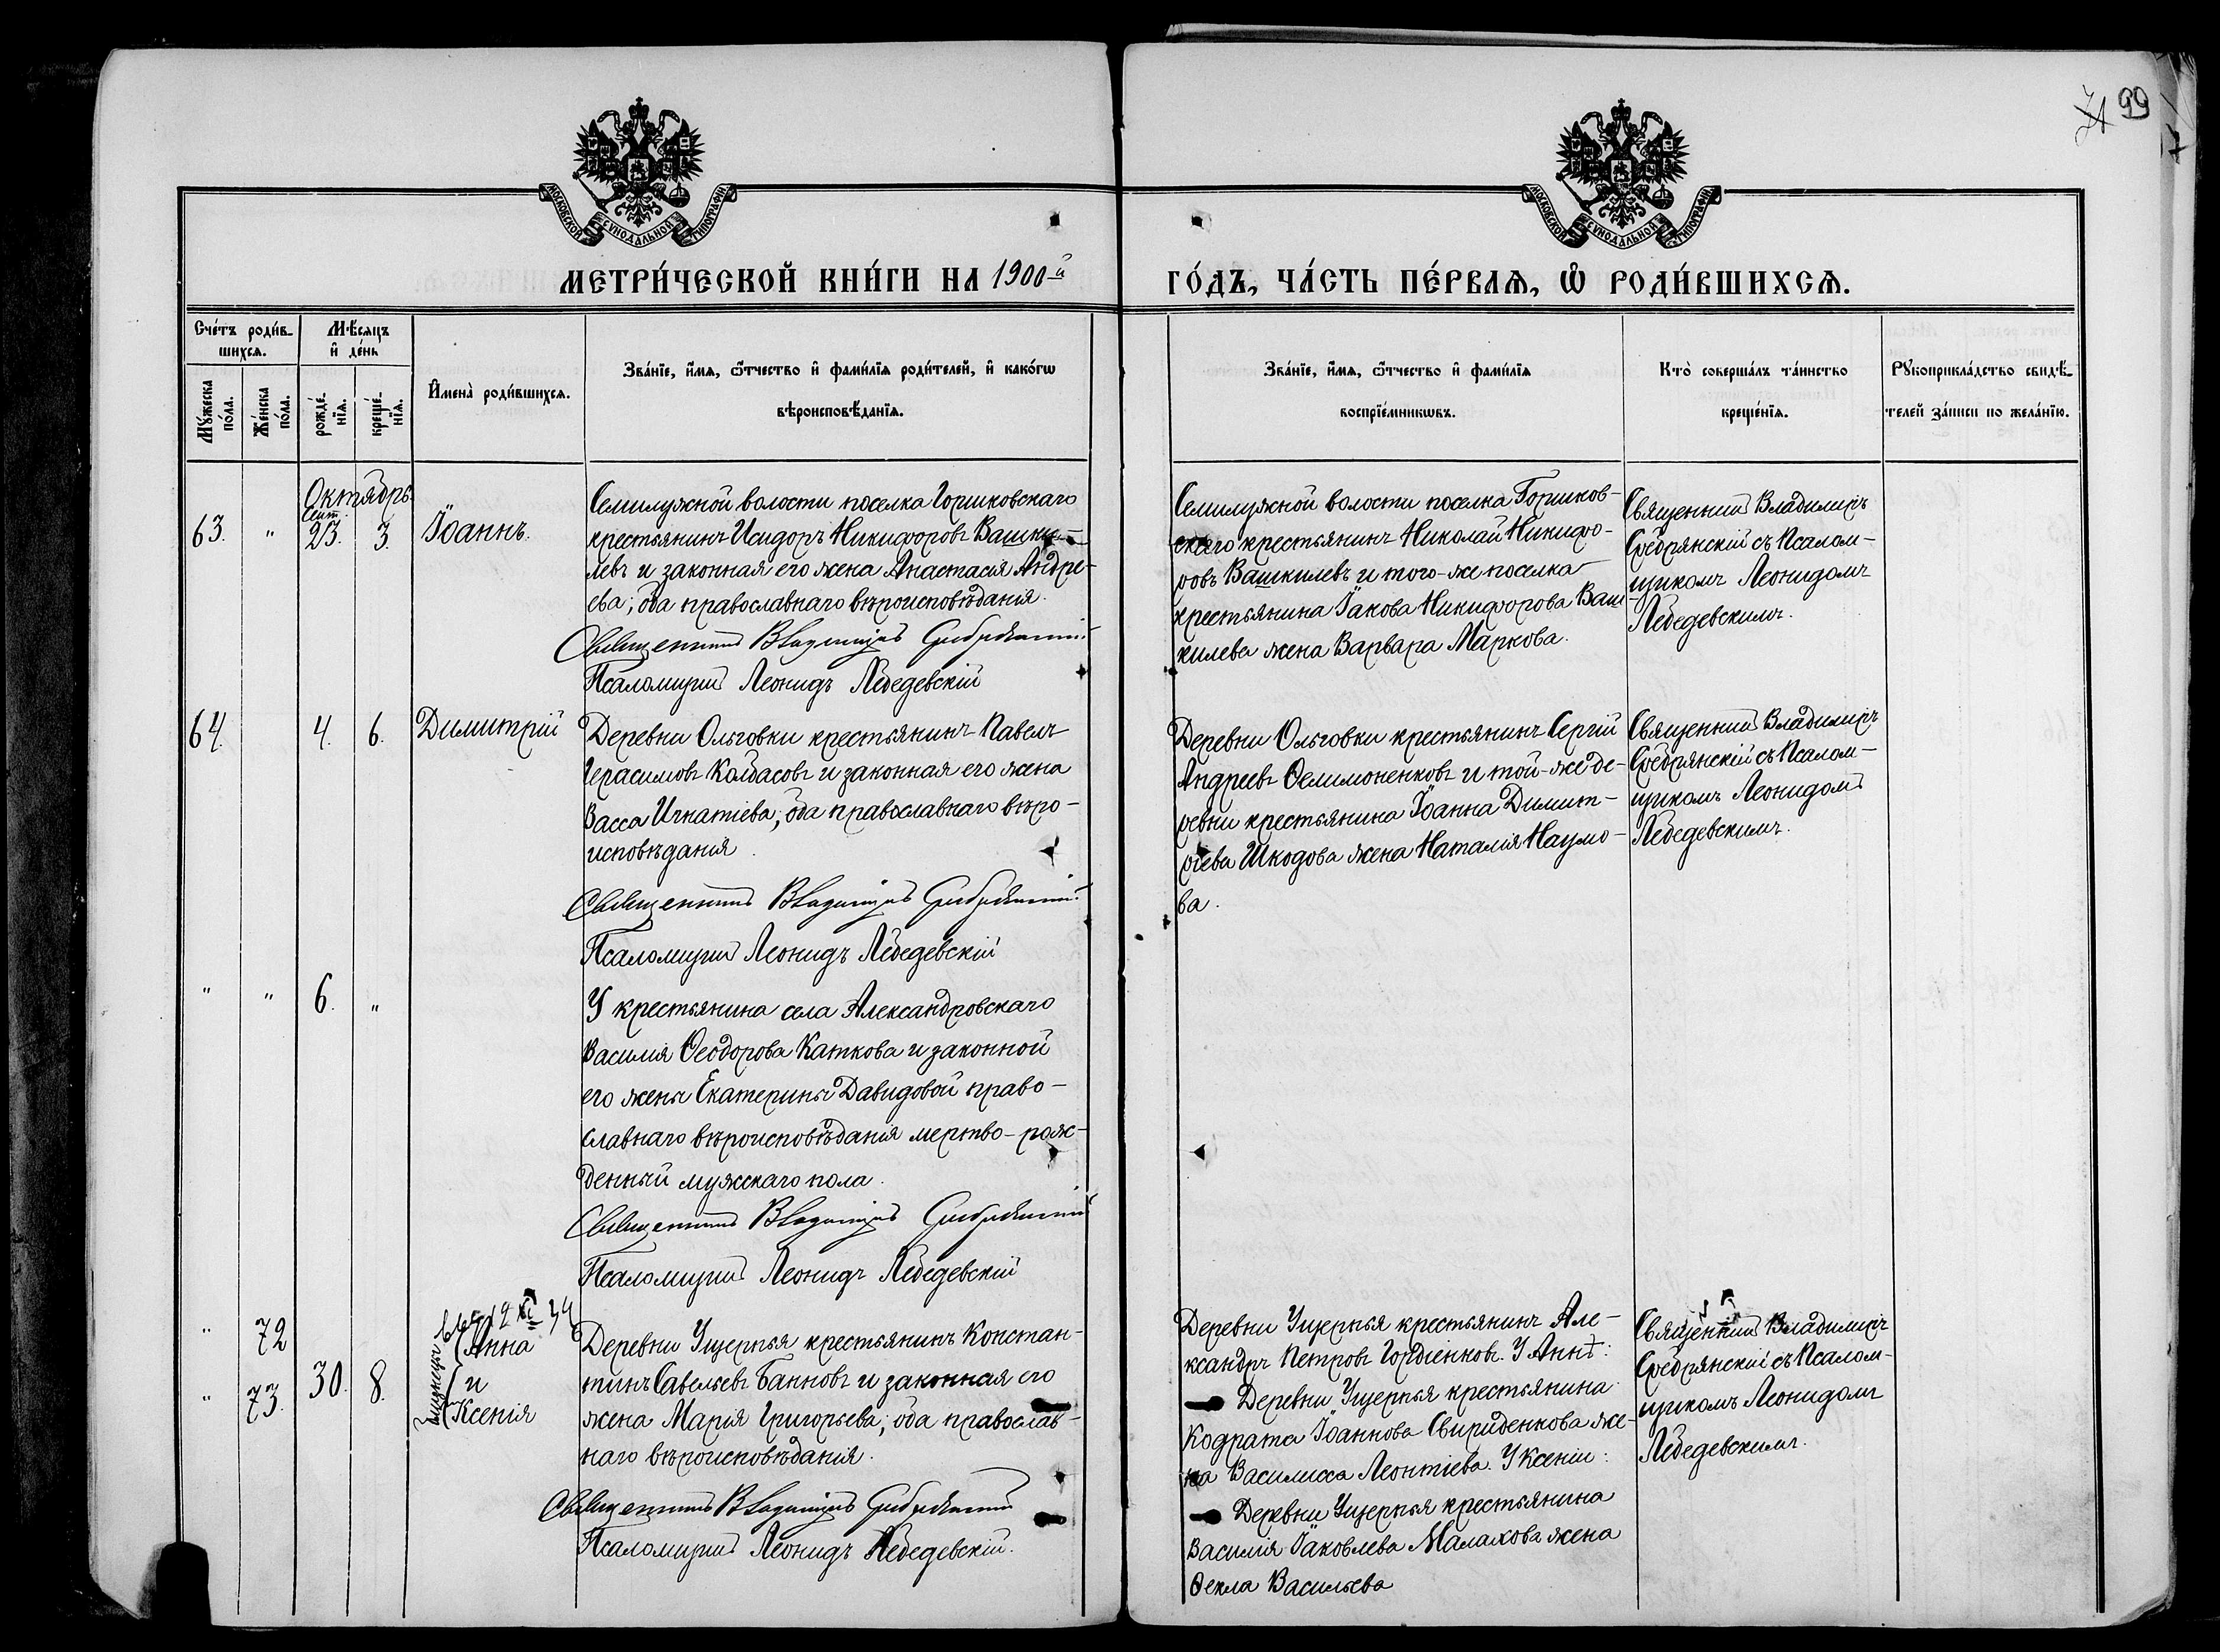 99
МОСКОВСКОЙ СѴНОДАЛЬНОЙ ТИПОГРАФІИ
МОСКОВСКОЙ СѴНОДАЛЬНОЙ ТИПОГРАФІИ
МЕТРИ́ЧЕСКОЙ КНИ́ГИ НА 1900-й
ГО́ДЪ, ЧА́СТЬ ПЕ́РВАѦ, Ѡ҆ РОДИ́ВШИХСѦ.
Сче́тъ роди́в-
шихсѧ.
Мѣ́сѧцъ
и҆ де́нь
Мꙋ́жеска по́ла.
Же́нска по́ла.
рожде́-нїѧ.
креще́-нїѧ.
И҆мена̀ роди́вшихсѧ.
Зва́нїе, и҆́мѧ, ѻ҆́тчество и҆ фами́лїѧ роди́телей, и҆ како́гѡ
вѣроисповѣ́данїѧ.
Зва́нїе, и҆́мѧ, ѻ҆́тчество и҆ фами́лїѧ
воспрїе́мникѡвъ.
Кто̀ соверша́лъ та́инство
креще́нїѧ.
Рꙋкоприкла́дство свидѣ́-
телей за́писи по жела́нїю.
Октябрь
63. " Сент. 23. 3. Іоаннъ.
Семилужной волости поселка Горшковскаго
крестьянинъ Исидоръ Никифоровъ Вашки-
левъ и законная его жена Анастасія Андре-
ева; оба православнаго вѣроисповѣданія.
Священникъ Владиміръ Сребрянскій
Псаломщикъ Леонидъ Лебедевскій
Семилужной волости поселка Горшков-
скаго крестьянинъ Николай Никифо-
ровъ Вашкилевъ и того-же поселка
крестьянина Іакова Никифорова Ваш-
килева жена Варвара Маркова.
Священникъ Владиміръ
Сребрянскій съ Псалом-
щикомъ Леонидомъ
Лебедевскимъ.
64. 4. 6. Димитрій
Деревни Ольговки крестьянинъ Павелъ
Герасимовъ Колбасовъ и законная его жена
Васса Игнатіева; оба православнаго вѣро-
исповѣданія.
Священникъ Владиміръ Сребрянскій
Псаломщикъ Леонидъ Лебедевскій
Деревни Ольговки крестьянинъ Сергій
Андреевъ Ѳелимоненковъ и той-же де-
ревни крестьянина Іоанна Димит-
ріева Шкодова жена Наталія Наумо-
ва.
Священникъ Владиміръ
Сребрянскій съ Псалом-
щикомъ Леонидомъ
Лебедевскимъ.
" " 6. "
У крестьянина села Александровскаго
Василія Ѳеодорова Каткова и законной
его жены Екатерины Давидовой право-
славнаго вѣроисповѣданія мертво-рож-
денный мужскаго пола.
Священникъ Владиміръ Сребрянскій
Псаломщикъ Леонидъ Лебедевскій
" 72
" 73. 30. 8.
близнецы
Анна
и
Ксенія
Деревни Ущерпья крестьянинъ Констан-
тинъ Савельевъ Банновъ и законная его
жена Марія Григорьева; оба православ-
наго вѣроисповѣданія.
Священникъ Владиміръ Сребрянскій
Псаломщикъ Леонидъ Лебедевскій.
Деревни Ущерпья крестьянинъ Але-
ксандръ Петровъ Гордіенковъ. У Анны:
Деревни Ущерпья крестьянина
Кодрата Іоаннова Свириденкова же-
на Василисса Леонтіева. У Ксеніи:
Деревни Ущерпья крестьянина
Василія Іаковлева Малахова жена
Ѳекла Васильева
Священникъ Владиміръ
Сребрянскій съ Псалом-
щикомъ Леонидомъ
Лебедевскимъ.